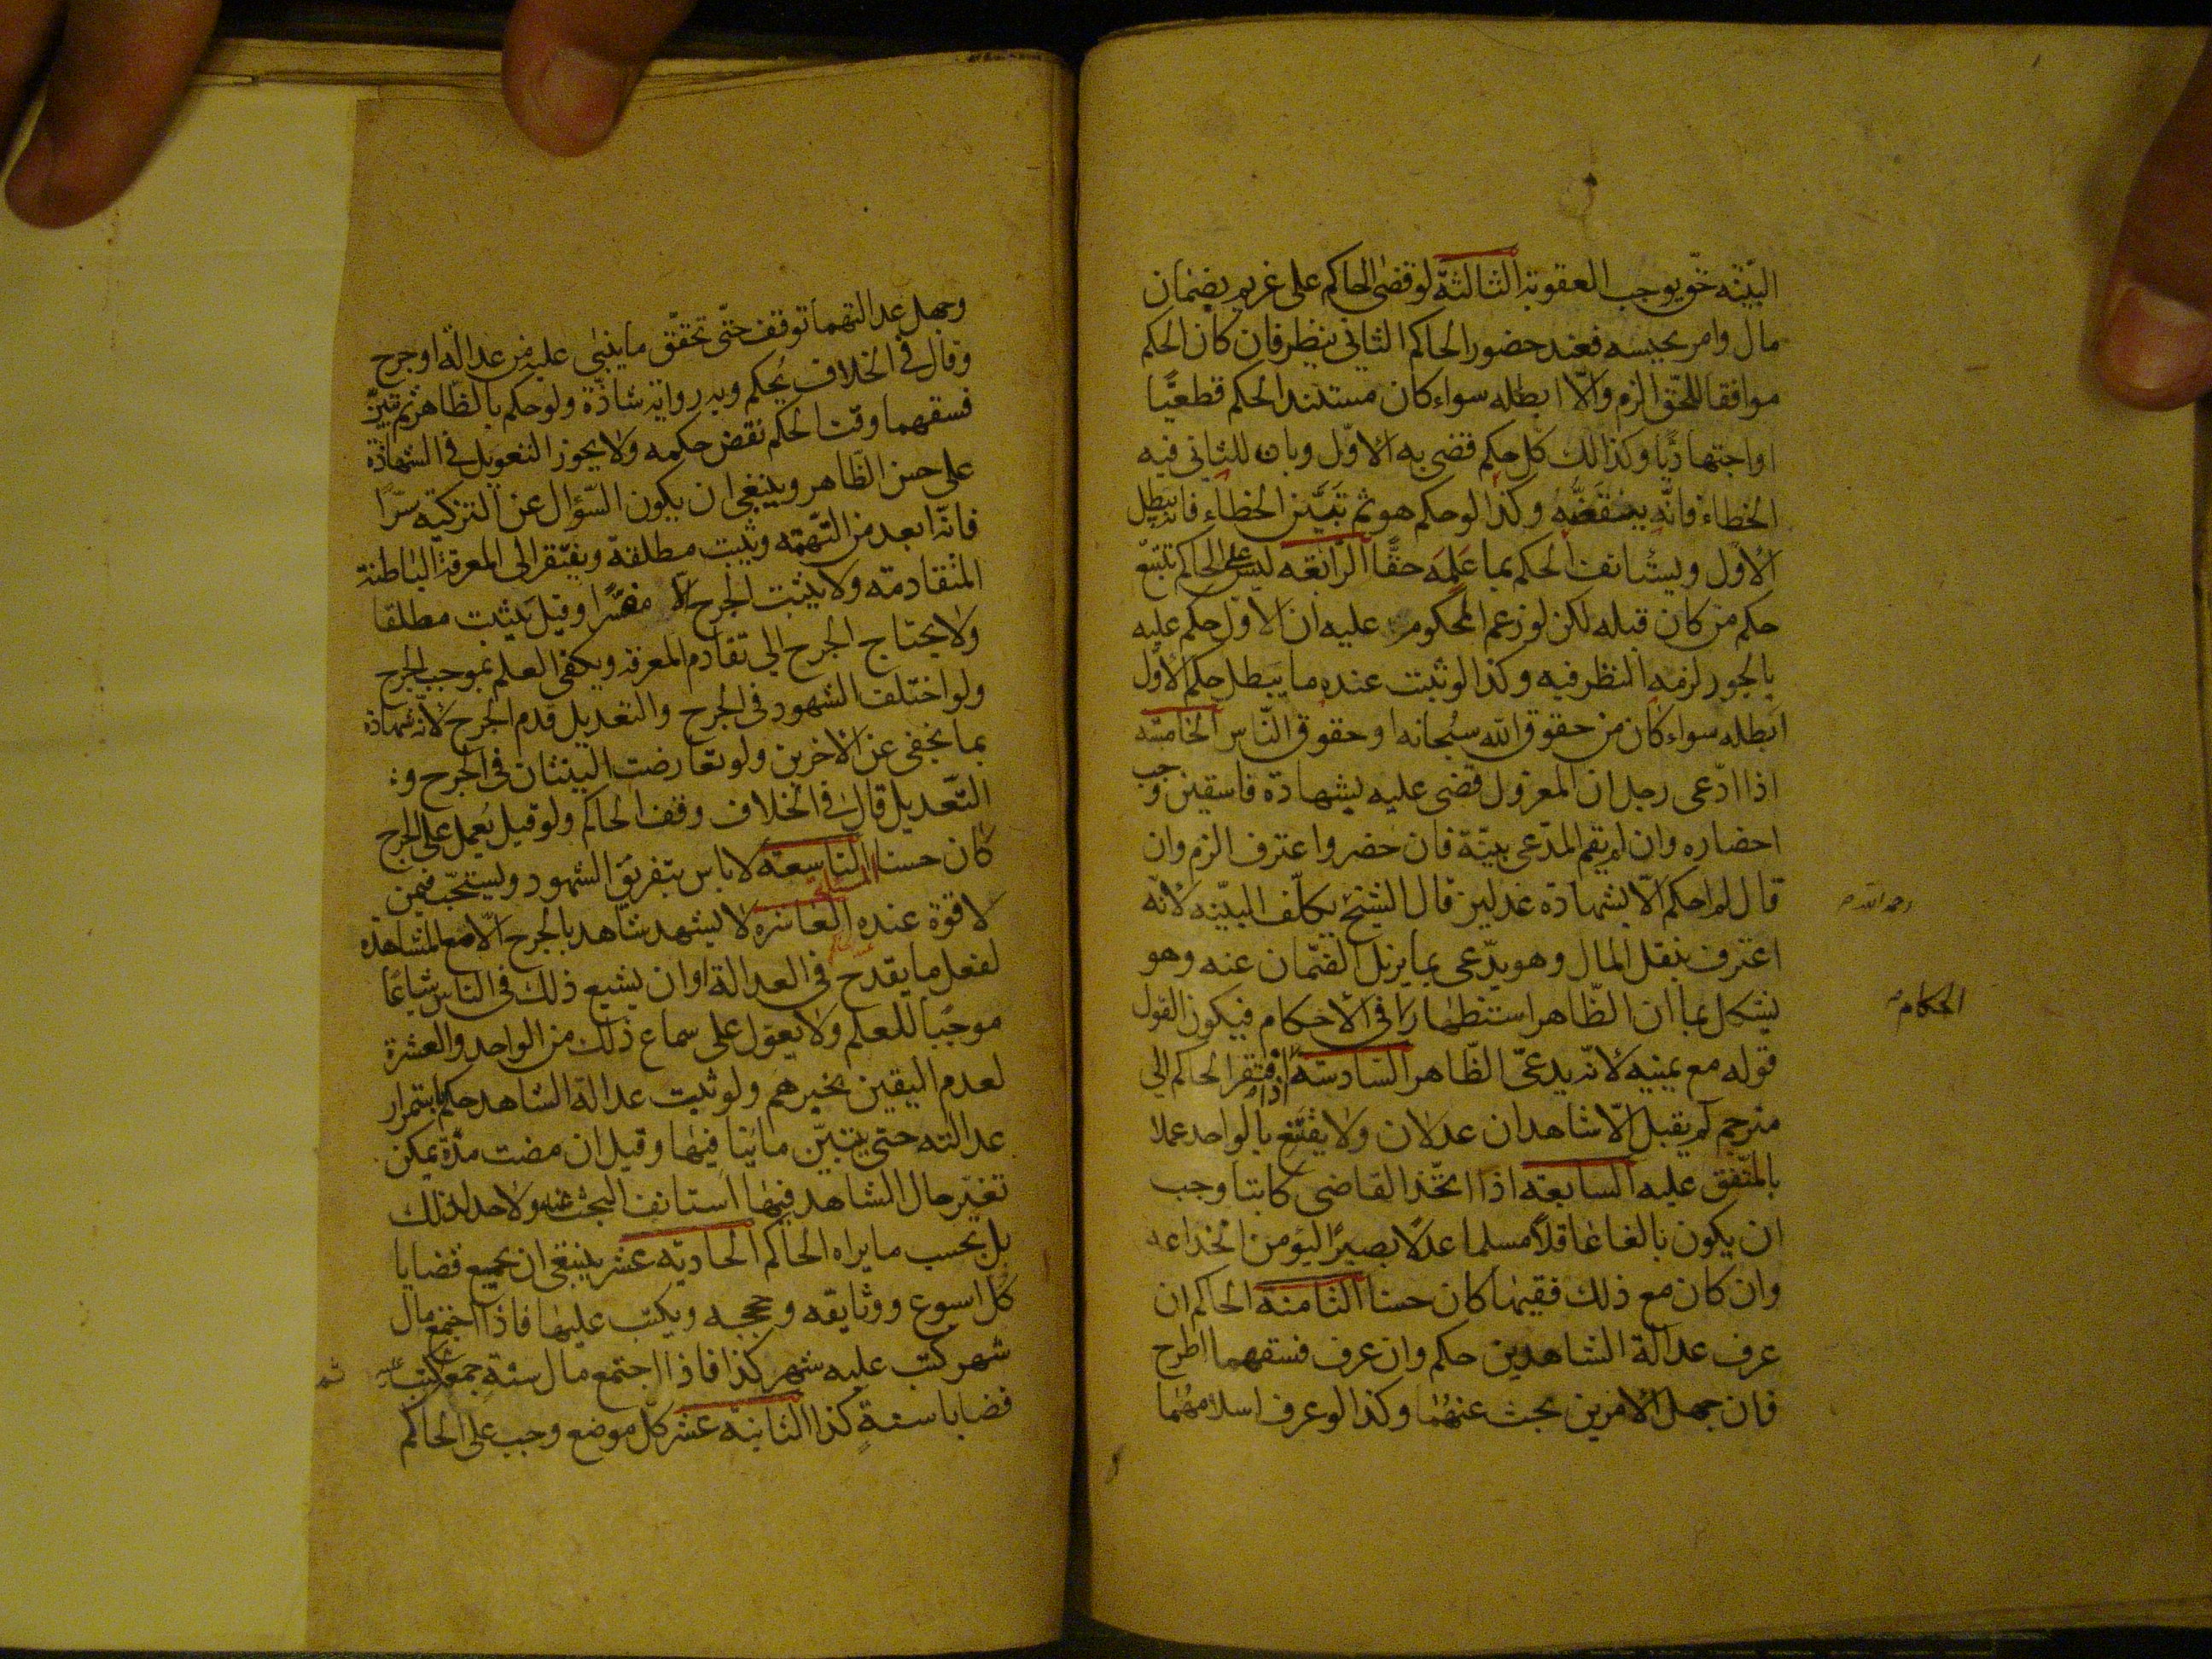 البيّنه حق يوجب العقوبة الثالثة لو قضى الحاكم على غريم بضمان
مال وامر بحبسه فعند حضور الحاكم الثاني ينظر فان كان الحكم
موافقا للحقّ الزم والّا ابطله سواء كان مستند الحكم قطعيًّا
او اجتهاديًّا وكذلك كل حكم قضى به الاوّل وبان للثاني فيه
الخطاء فانّه ينقضه وكذا لو حكم هو ثم تبيّن الخطاء فانه يبطل
الاوّل ويستانف الحكم بما علمه حقًّا الرّابعه ليس على الحاكم تتبّع
حكم من كان قبله لكن لو زعم المحكوم عليه ان الاوّل حكم عليه
بالجور لزمه النظر فيه وكذا لو ثبت عنده ما يبطل حكم الاوّل
ابطله سواء كان من حقوق الله سبحانه او حقوق النّاس الخامسه
اذا ادّعى رجل ان المعزول قضى عليه بشهادة فاسقين وجب
احضاره وان لم يقم المدّعى بيّنة فان حضر واعترف الزم وان
قال لم احكم الّا بشهادة عدلين قال الشيخ يكلّف البيّنه لانّه
رحمه الله
اعترف بنقل المال وهو يدّعى بما يزيل الضّمان عنه وهو
يشكل بما ان الظّاهر استظهارًا فى الاحكام فيكون القول
الحكام
قوله مع يمينه لانّه يدعّى الظّاهر السّادسة اذا افتقر الحاكم الى
مترجم لم يقبل الّا شاهدان عدلان ولا يقتنع بالواحد عملا
بالمتّفق عليه السابعه اذا اتّخذ القاضى كاتبا وجب
ان يكون بالغا عاقلًا مسلما عدلًا بصيرًا ليؤمن انخداعه
وان كان مع ذلك فقيها كان حسنا الثامنة الحاكم ان
عرف عدالة الشاهدين حكم وان عرف فسقهما اطرح
فان جهل الامرين بحث عنهما وكذا لو عرف اسلامهما
وجهل عدالتهما توقف حتّى تحقّق ما يبنى عليه من عدالة او جرح
وقال فى الخلاف يُحكم وبه رواية شاذّة ولو حكم بالظّاهر ثم تبيّن
فسقهما وقت الحكم نقض حكمه ولا يجوز التعويل فى الشهادة
على حسن الظّاهر وينبغى ان يكون السّؤال عن التزكيه سرًّا
فانّه ابعد من التّهمه ويثبت مطلقة ويفتقر الى المعرفة الباطنة
المتقادمه ولا يثبت الجرح الّا مفسّرًا وقيل يثبت مطلقا
ولا يحتاج الجرح الى تقادم المعرفة ويكفى العلم بموجب الجرح
ولو اختلف الشهود فى الجرح والتعديل قدم الجرح لانّه شهادة
بما يخفى عن الاخرين ولو تعارضت البينتان فى الجرح و
التّعديل قال فى الخلاف وقف الحاكم ولو قيل يُعمل على الجرح
كان حسنا التاسعة لا باس بتفريق الشهود ويستحّب فيمن
لا قوّة عنده العاشرة لا يشهد شاهد بالجرح الّا مع المشاهده
لفعل ما يقدح فى العدالة او ان يشيع ذلك فى الناس شياعًا
موجبًا للعلم ولا يعوّل على سماع ذلك من الواحد والعشرة
لعدم اليقين بخبرهم ولو ثبت عدالة الشاهد حكم باستمرار
عدالته حتى يتبيّن ما ينافيها وقيل ان مضت مدّة يمكن
تغيّر حال الشاهد فيها استانف البحث عنه ولا حد لذلك
بل بحسب ما يراه الحاكم الحادية عشر ينبغى ان يجمع قضايا
كل اسبوع ووثايقه وحججه ويكتب عليها فاذا اجتمع مال
شهر كتب عليه شهر كذا فاذا اجتمع مال سنة جمع وكتب عليه
قضايا سنةٍ كذا الثانية عشر كلّ موضع وجب على الحاكم